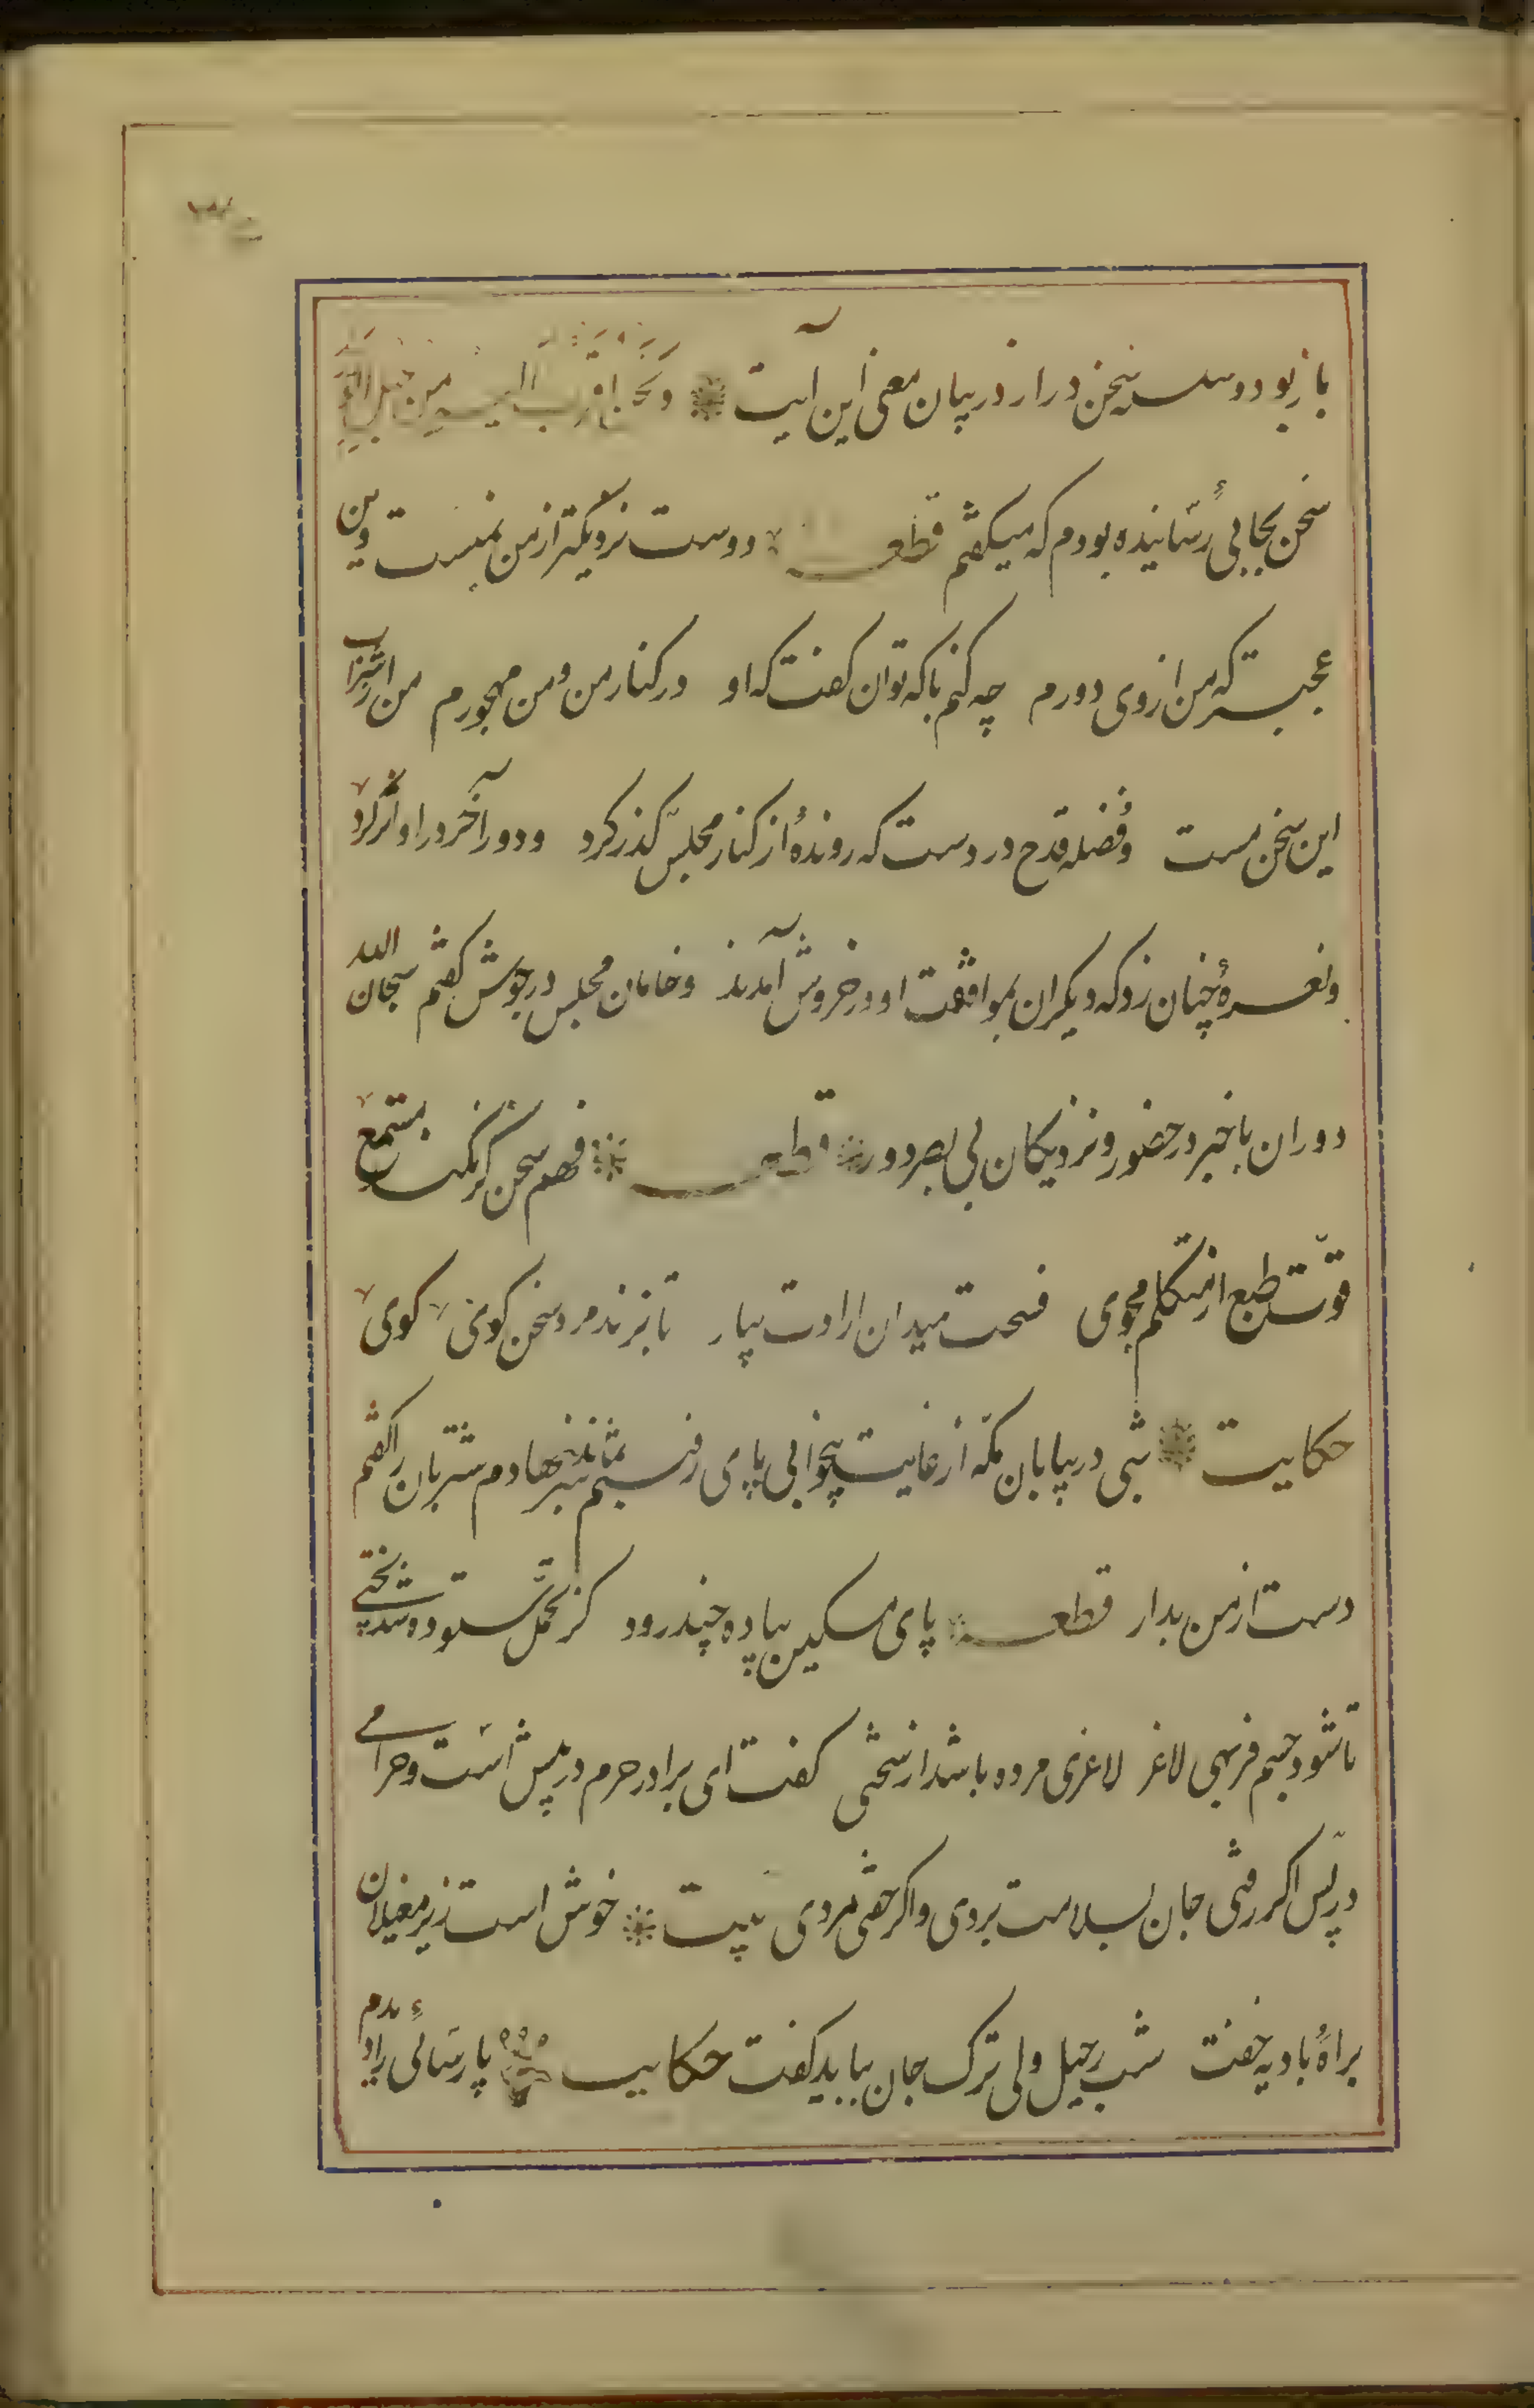 باز بود و سلسله سخن دراز در بیان معنی این آیت و نحن اقرب الیه من حبل الورید
سخن بجایی رسانیده بودم که میکفتم قطعه دوست نزدیکتر از من بمنست وین
عجبتر که من از وی دورم چه کنم با که توان کفت که او در کنار من و من مهجورم من از شراب
این سخن مست و فضله قدح در دست که روندهٔ از کنار مجلس کذر کرد و دور آخر در او اثر کرد
و نعرهٔ چنان زد که دیکران بموافقت او در خروش آمدند و خامان مجلس در جوش کفتم سبحان الله
دوران باخبر در حضور و نزدیکان بی بصر دور قطعه فهم سخن کر نکند مستمع
قوّت طبع از متکلم مجوی فسحت میدان ارادت بیار تا بزند مرد سخن کوی کوی
حکایت شبی در بیابان مکّه از غایت بیخوابی پای رفتنم نماند سر بنهادم شتربان را کفتم
دست از من بدار قطعه پای مسکین پیاده چند رود کز تحمّل ستوه شد بختی
تا شود جسم فربهی لاغر لاغری مرده باشد از سختی کفت ای برادر حرم در پیش است و حرامی
در پس اکر رفتی جان بسلامت بردی و اکر خفتی مردی بیت خوش است زیر مغیلان
براه بادیه خفت شب رحیل ولی ترک جان بباید کفت حکایت پارسائی را دیدم